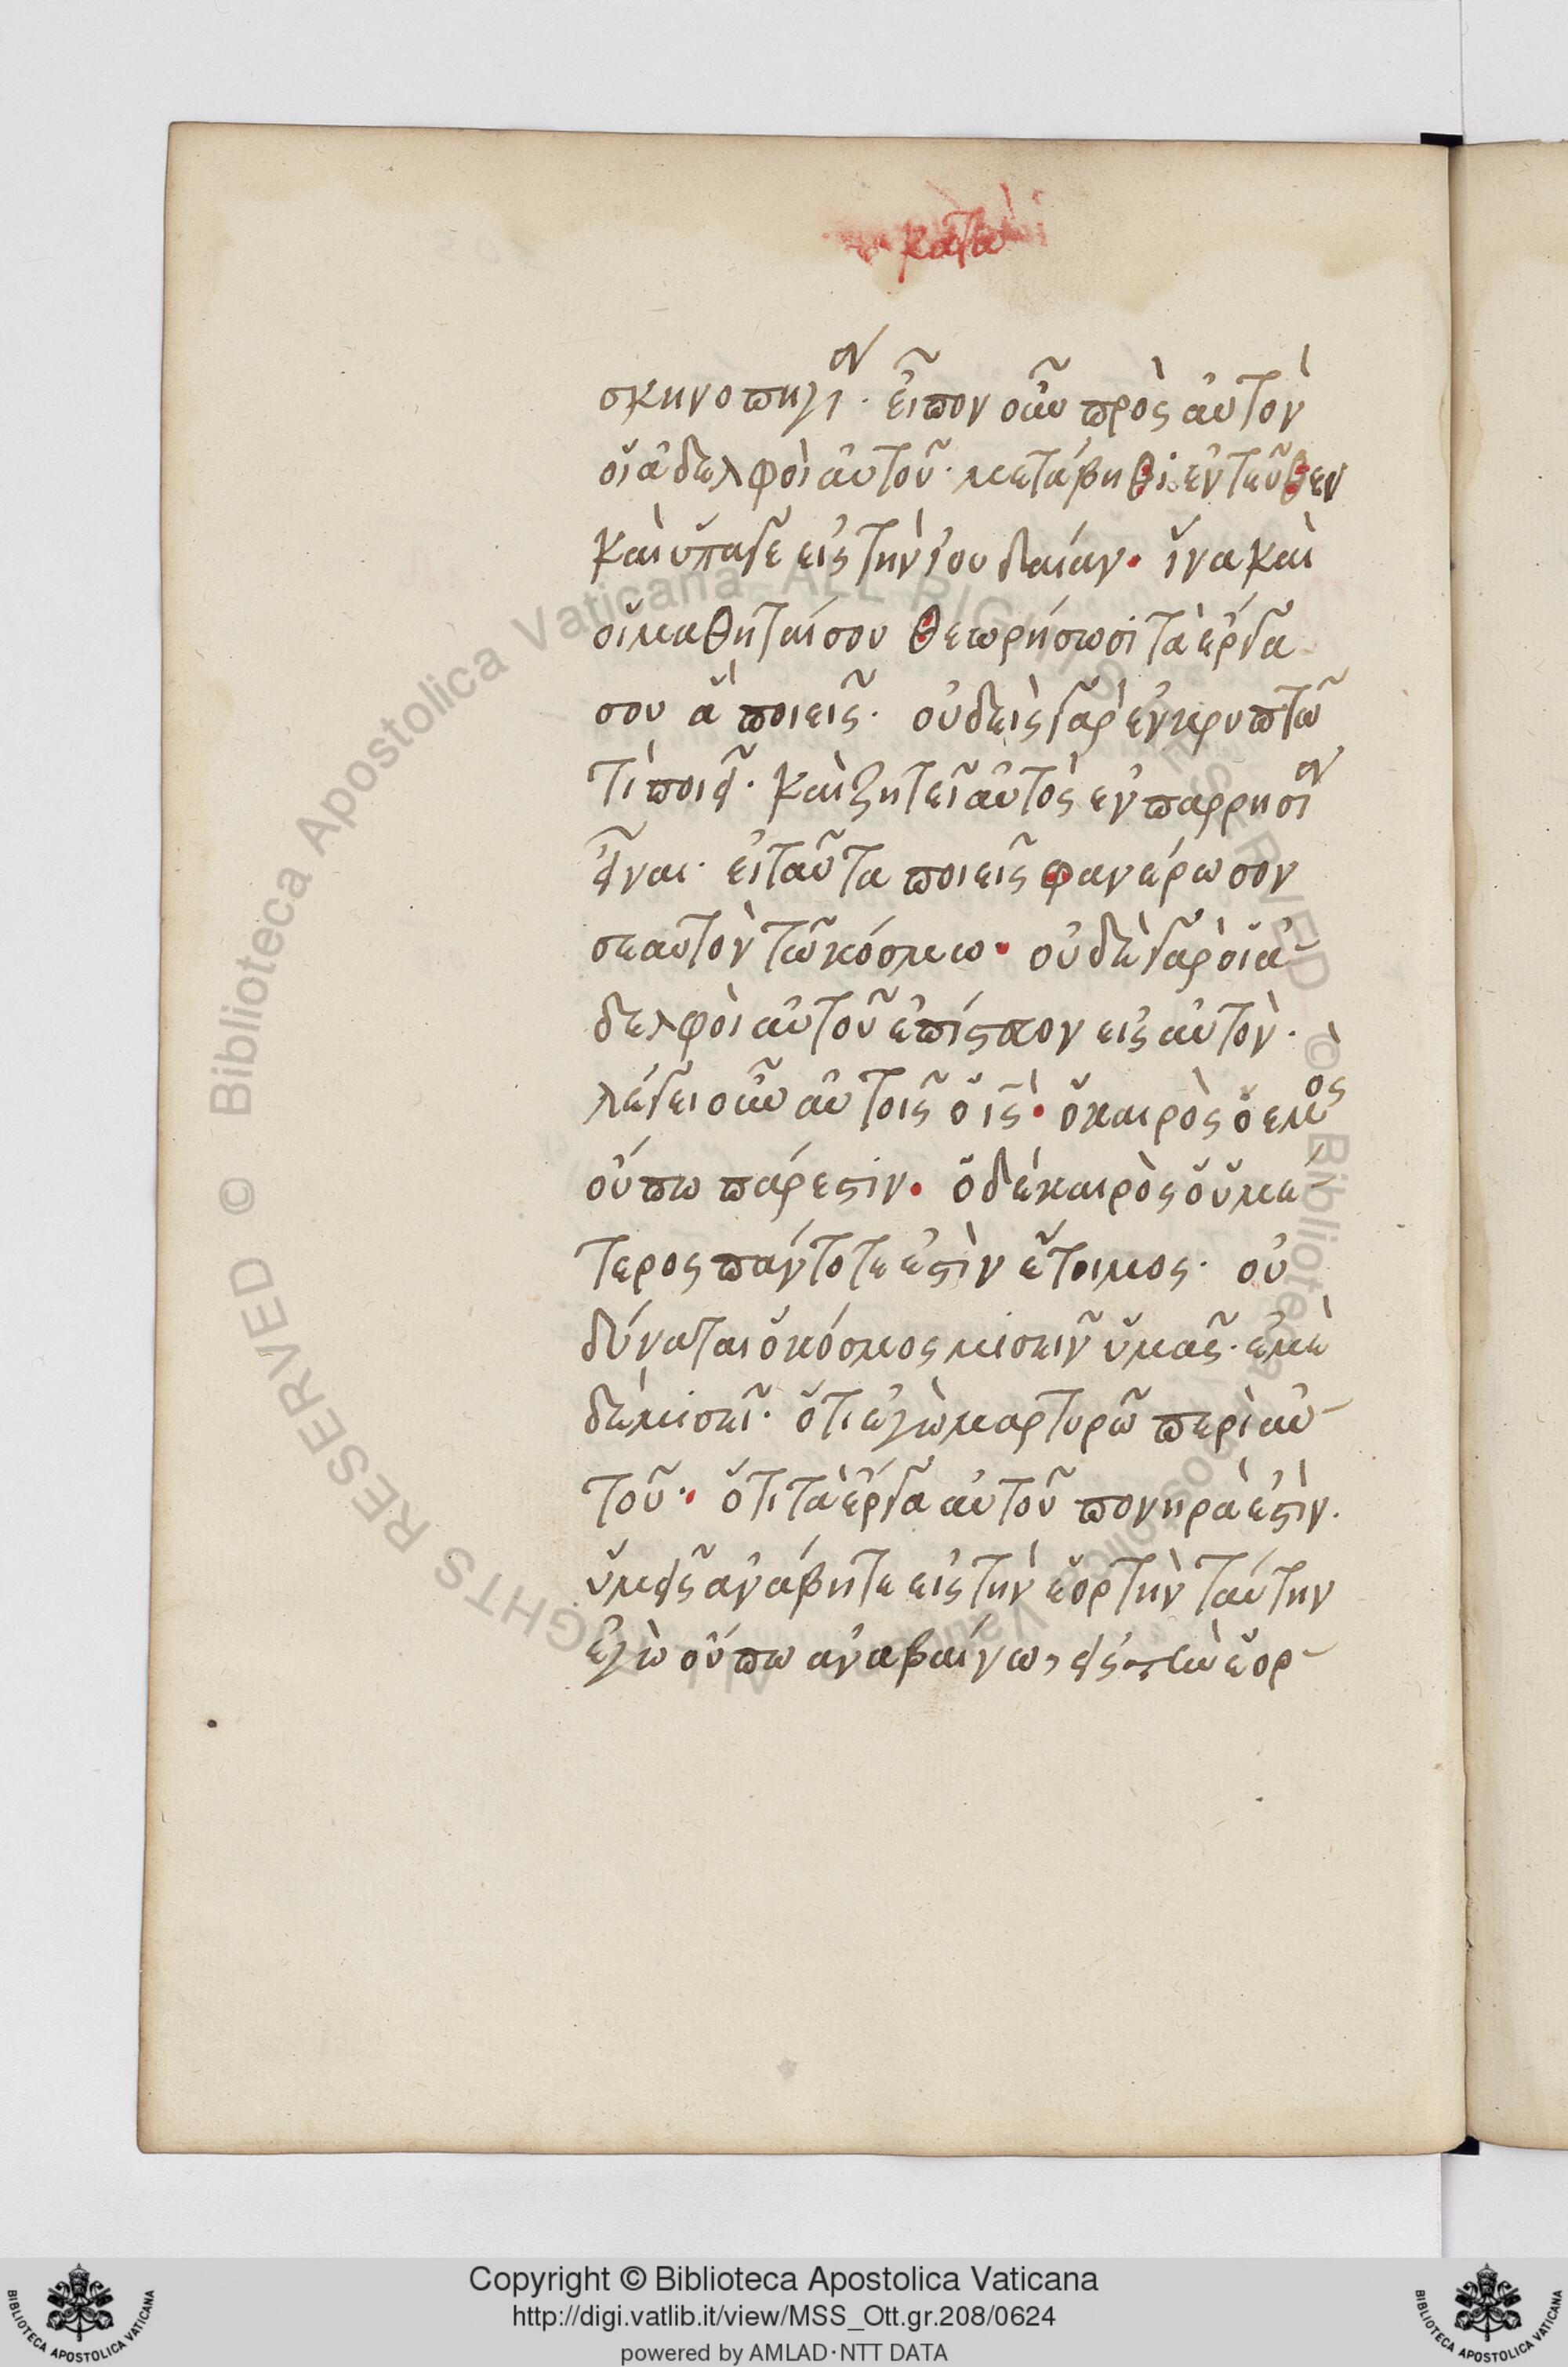 κατὰ
σκηνοπηγία. εἶπον οὖν πρὸς αὐτὸν
οἱ ἀδελφοὶ αὐτοῦ. μετάβηθι ἐντεῦθεν
καὶ ὕπαγε εἰς τὴν ἰουδαίαν. ἵνα καὶ
οἱ μαθηταί σου θεωρήσωσι τὰ ἔργα
σου ἃ ποιεῖς. οὐδεὶς γὰρ ἐν κρυπτῶ
τὶ ποιεῖ. καὶ ζητεῖ αὐτὸς ἐν παρρησία
εἶναι. εἰ ταῦτα ποιεῖς φανέρωσον
σεαυτὸν τῶ κόσμω. οὐδὲ γὰρ οἱ ἀ-
δελφοὶ αὐτοῦ ἐπίστευον εἰς αὐτόν.
λέγει οὖν αὐτοῖς ὁ ις. ὁ καιρὸς ὁ ἐμὸς
οὔπω πάρεστιν. ὁ δὲ καιρὸς ὁ ὑμέ-
τερος πάντοτε ἐστὶν ἕτοιμος. οὐ
δύναται ὁ κόσμος μισεῖν ὑμᾶς. ἐμὲ
δὲ μισεῖ. ὅτι ἐγὼ μαρτυρῶ περὶ αὐ-
τοῦ. ὅτι τὰ ἔργα αὐτοῦ πονηρά ἐστιν.
ὑμεῖς ἀνάβητε εἰς τὴν ἑορτὴν ταύτην
ἐγὼ οὔπω ἀναβαίνω, εἰς τὴν ἑορ-
Copyright © Biblioteca Apostolica Vaticana
http://digi.vatlib.it/view/MSS_Ott.gr.208/0624
powered by AMLAD·NTT DATA
BIBLIOTECA APOSTOLICA VATICANA
BIBLIOTECA APOSTOLICA VATICANA
© Biblioteca Apostolica Vaticana ALL RIGHTS RESERVED © Biblioteca Apostolica Vaticana ALL RIGHTS RESERVED